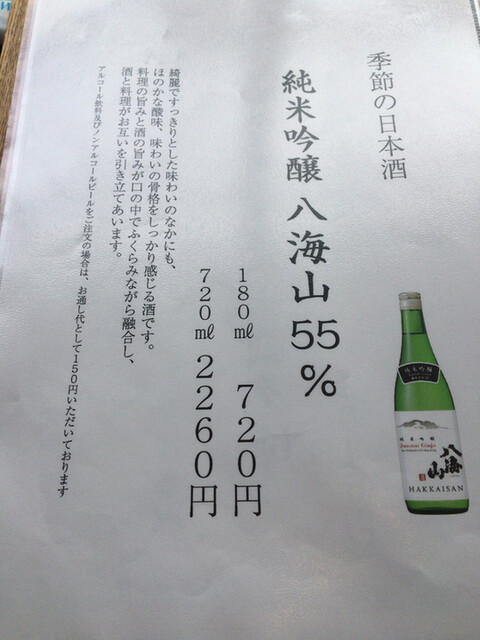 季節の日本酒
純米吟醸 八海山 55%
180㎖ 720円
720㎖ 2260円
綺麗ですっきりとした味わいのなかにも、
ほのかな酸味、味わいの骨格をしっかり感じる酒です。
料理の旨みと酒の旨みが口の中でふくらみながら融合し、
酒と料理がお互いを引き立てあいます。
アルコール飲料及びノンアルコールビールをご注文の場合は、お通し代として150円いただいております
純米吟醸
純米吟醸
Junmai Ginjo
八海山
HAKKAISAN